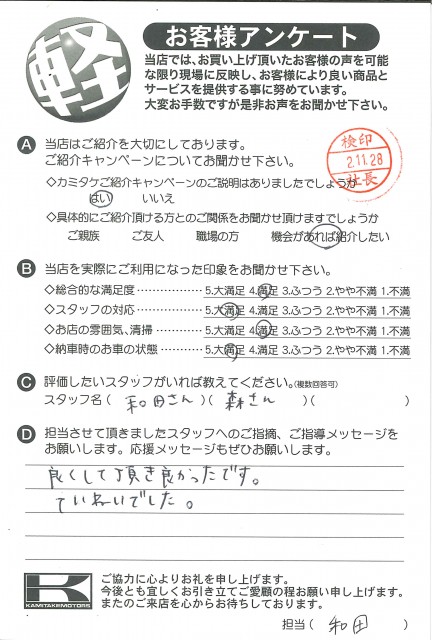 軽
お客様アンケート
当店では、お買い上げ頂いたお客様の声を可能
な限り現場に反映し、お客様により良い商品と
サービスを提供する事に努めています。
大変お手数ですが是非お声をお聞かせ下さい。
A 当店はご紹介を大切にしております。
ご紹介キャンペーンについてお聞かせ下さい。
検印
2.11.28
社長
◇カミタケご紹介キャンペーンのご説明はありましたでしょうか
はい いいえ
◇具体的にご紹介頂ける方とのご関係をお聞かせ頂けますでしょうか
ご親族 ご友人 職場の方 機会があれば紹介したい
B 当店を実際にご利用になった印象をお聞かせ下さい。
◇総合的な満足度……………… 5.大満足 4.満足 3.ふつう 2.やや不満 1.不満
◇スタッフの対応……………… 5.大満足 4.満足 3.ふつう 2.やや不満 1.不満
◇お店の雰囲気、清掃………… 5.大満足 4.満足 3.ふつう 2.やや不満 1.不満
◇納車時のお車の状態………… 5.大満足 4.満足 3.ふつう 2.やや不満 1.不満
C 評価したいスタッフがいれば教えてください。(複数回答可)
スタッフ名( 和田さん )( 森さん )( )
D 担当させて頂きましたスタッフへのご指摘、ご指導メッセージを
お願いします。応援メッセージもぜひお願いします。
良くして頂き良かったです。
ていねいでした。
K
KAMITAKEMOTORS
ご協力に心よりお礼を申し上げます。
今後とも宜しくお引き立てご愛顧の程お願い申し上げます。
またのご来店を心からお待ちしております。
担当( 和田 )